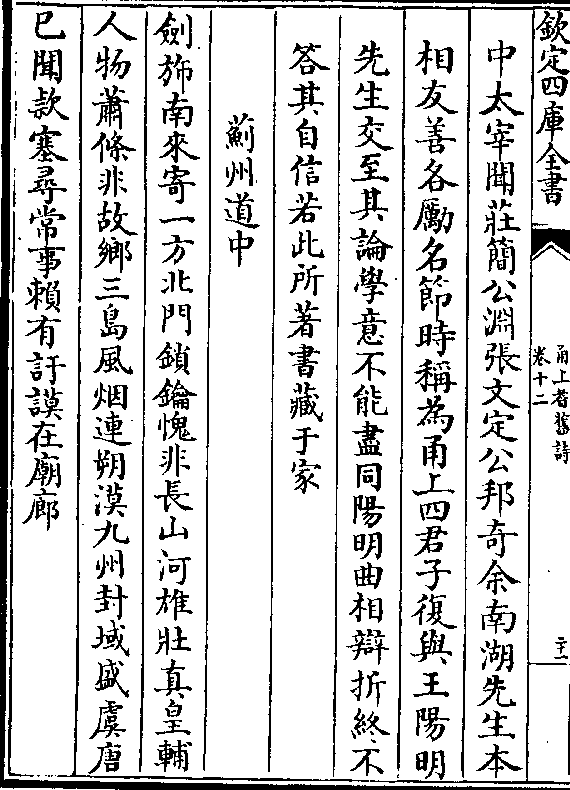 欽定四庫全書
甬上耆舊詩
卷十二
二十一
中太宰聞莊簡公淵張文定公邦奇余南湖先生本
相友善各勵名節時稱為甬上四君子復與王陽明
先生交至其論學意不能盡同陽明曲相辯折終不
答其自信若此所著書藏于家
薊州道中
劍斾南來寄一方北門鎖鑰愧非長山河雄壯真皇輔
人物蕭條非故鄉三島風烟連朔漠九州封域盛虞唐
已聞欵塞尋常事賴有訏謨在廟廊